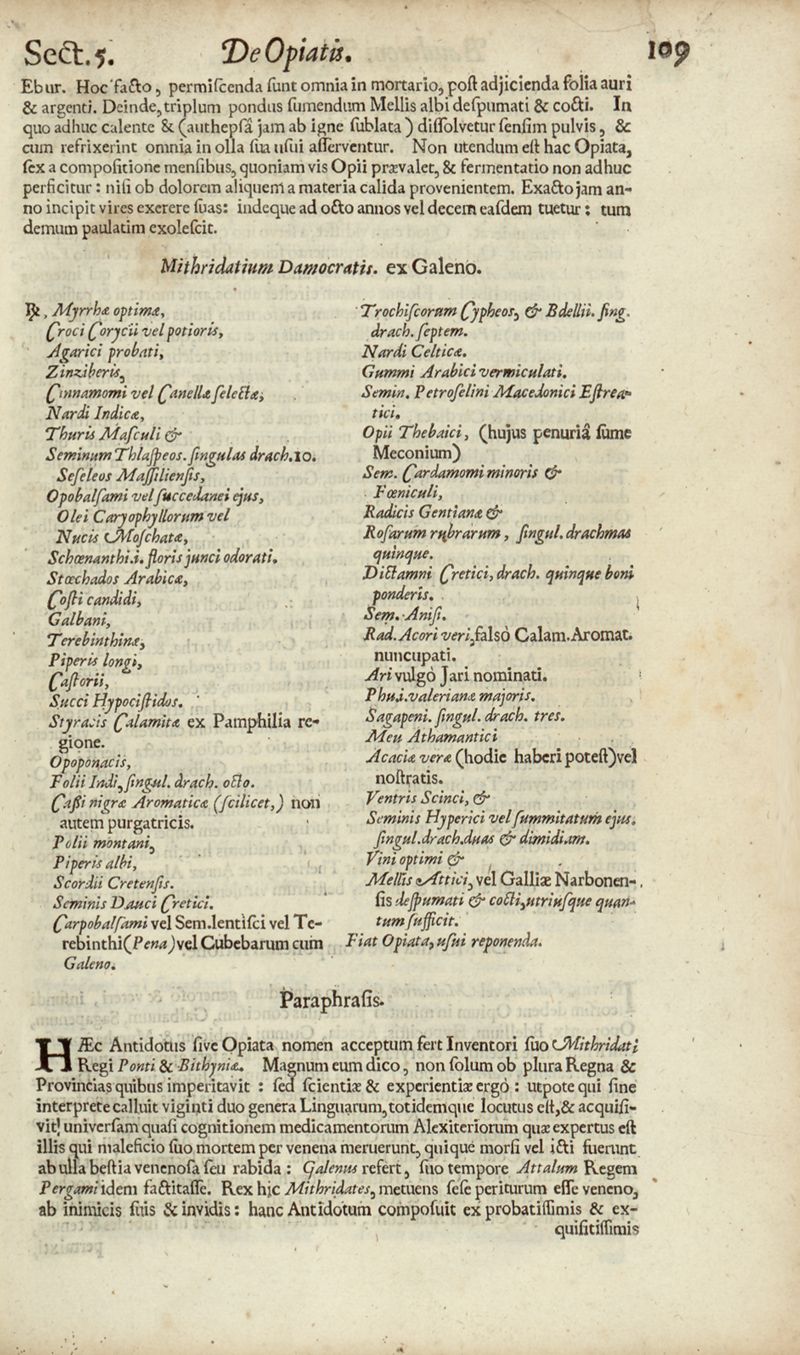 Sect. 5. De Opiatis. 109
Ebur. Hoc facto, permiſcenda ſunt omnia in mortario, poſt adjicienda folia auri
& argenti. Deinde, triplum pondus ſumendum Mellis albi deſpumati & cocti. In
quo adhuc calente & (authepſâ jam ab igne ſublata) diſſolvetur ſenſim pulvis, &
cum refrixerint omnia in olla ſua uſui aſſerventur. Non utendum eſt hac Opiata,
ſex a compoſitione menſibus, quoniam vis Opii prævalet, & fermentatio non adhuc
perficitur: niſi ob dolorem aliquem a materia calida provenientem. Exacto jam an-
no incipit vires exerere ſuas: indeque ad octo annos vel decem eaſdem tuetur: tum
demum paulatim exoleſcit.
Mithridatium Damocratis. ex Galeno.
℞, Myrrhæ optimæ,
Croci Corycii vel potioris,
Agarici probati,
Zinziberis,
Cinnamomi vel Canellæ ſelectæ,
Nardi Indicæ,
Thuris Maſculi &
Seminum Thlaſpeos. ſingulas drach. 10.
Seſeleos Maſſilienſis,
Opobalſami vel ſuccedanei ejus,
Olei Caryophyllorum vel
Nucis Moſchatæ,
Schœnanthi.i. floris junci odorati.
Stœchados Arabicæ,
Coſti candidi,
Galbani,
Terebinthinæ,
Piperis longi,
Caſtorii,
Succi Hypociſtidos.
Styracis Calamitæ ex Pamphilia re-
gione.
Opoponacis,
Folii Indi, ſingul. drach. octo.
Caſſi nigræ Aromaticæ (ſcilicet,) non
autem purgatricis.
Polii montani,
Piperis albi,
Scordii Cretenſis.
Seminis Dauci Cretici.
Carpobalſami vel Sem. lentiſci vel Te-
rebinthi (Pena) vel Cubebarum cum
Galeno.
Trochiſcorum Cypheos, & Bdellii. ſing.
drach. ſeptem.
Nardi Celticæ.
Gummi Arabici vermiculati.
Semin. Petroſelini Macedonici Eſtrea-
tici.
Opii Thebaici, (hujus penuriâ ſume
Meconium)
Sem. Cardamomi minoris &
Fœniculi,
Radicis Gentianæ &
Roſarum rubrarum, ſingul. drachmas
quinque.
Dictamni Cretici, drach. quinque boni
ponderis.
Sem. Aniſi.
Rad. Acori veri, falsò Calam. Aromat.
nuncupati.
Ari vulgò Jari nominati.
Phu.i. valerianæ majoris.
Sagapeni. ſingul. drach. tres.
Meu Athamantici
Acaciæ veræ (hodie haberi poteſt) vel
noſtratis.
Ventris Scinci, &
Seminis Hyperici vel ſummitatum ejus.
ſingul. drach. duas & dimidiam.
Vini optimi &
Mellis Attici, vel Galliæ Narbonen-
ſis deſpumati & cocti, utriuſque quan-
tum ſufficit.
Fiat Opiata, uſui reponenda.
Paraphraſis.
HÆc Antidotus ſive Opiata nomen acceptum fert Inventori ſuo Mithridati
Regi Ponti & Bithyniæ. Magnum eum dico, non ſolum ob plura Regna &
Provincias quibus imperitavit: ſed ſcientiæ & experientiæ ergò: utpote qui ſine
interprete calluit viginti duo genera Linguarum, totidemque locutus eſt, & acquiſi-
vit univerſam quaſi cognitionem medicamentorum Alexiteriorum quæ expertus eſt
illis qui maleficio ſuo mortem per venena meruerunt, quique morſi vel icti fuerunt
ab ulla beſtia venenoſa ſeu rabida: Galenus refert, ſuo tempore Attalum Regem
Pergami idem factitaſſe. Rex hic Mithridates, metuens ſeſe periturum eſſe veneno,
ab inimicis ſuis & invidis: hanc Antidotum compoſuit ex probatiſſimis & ex-
quiſitiſſimis